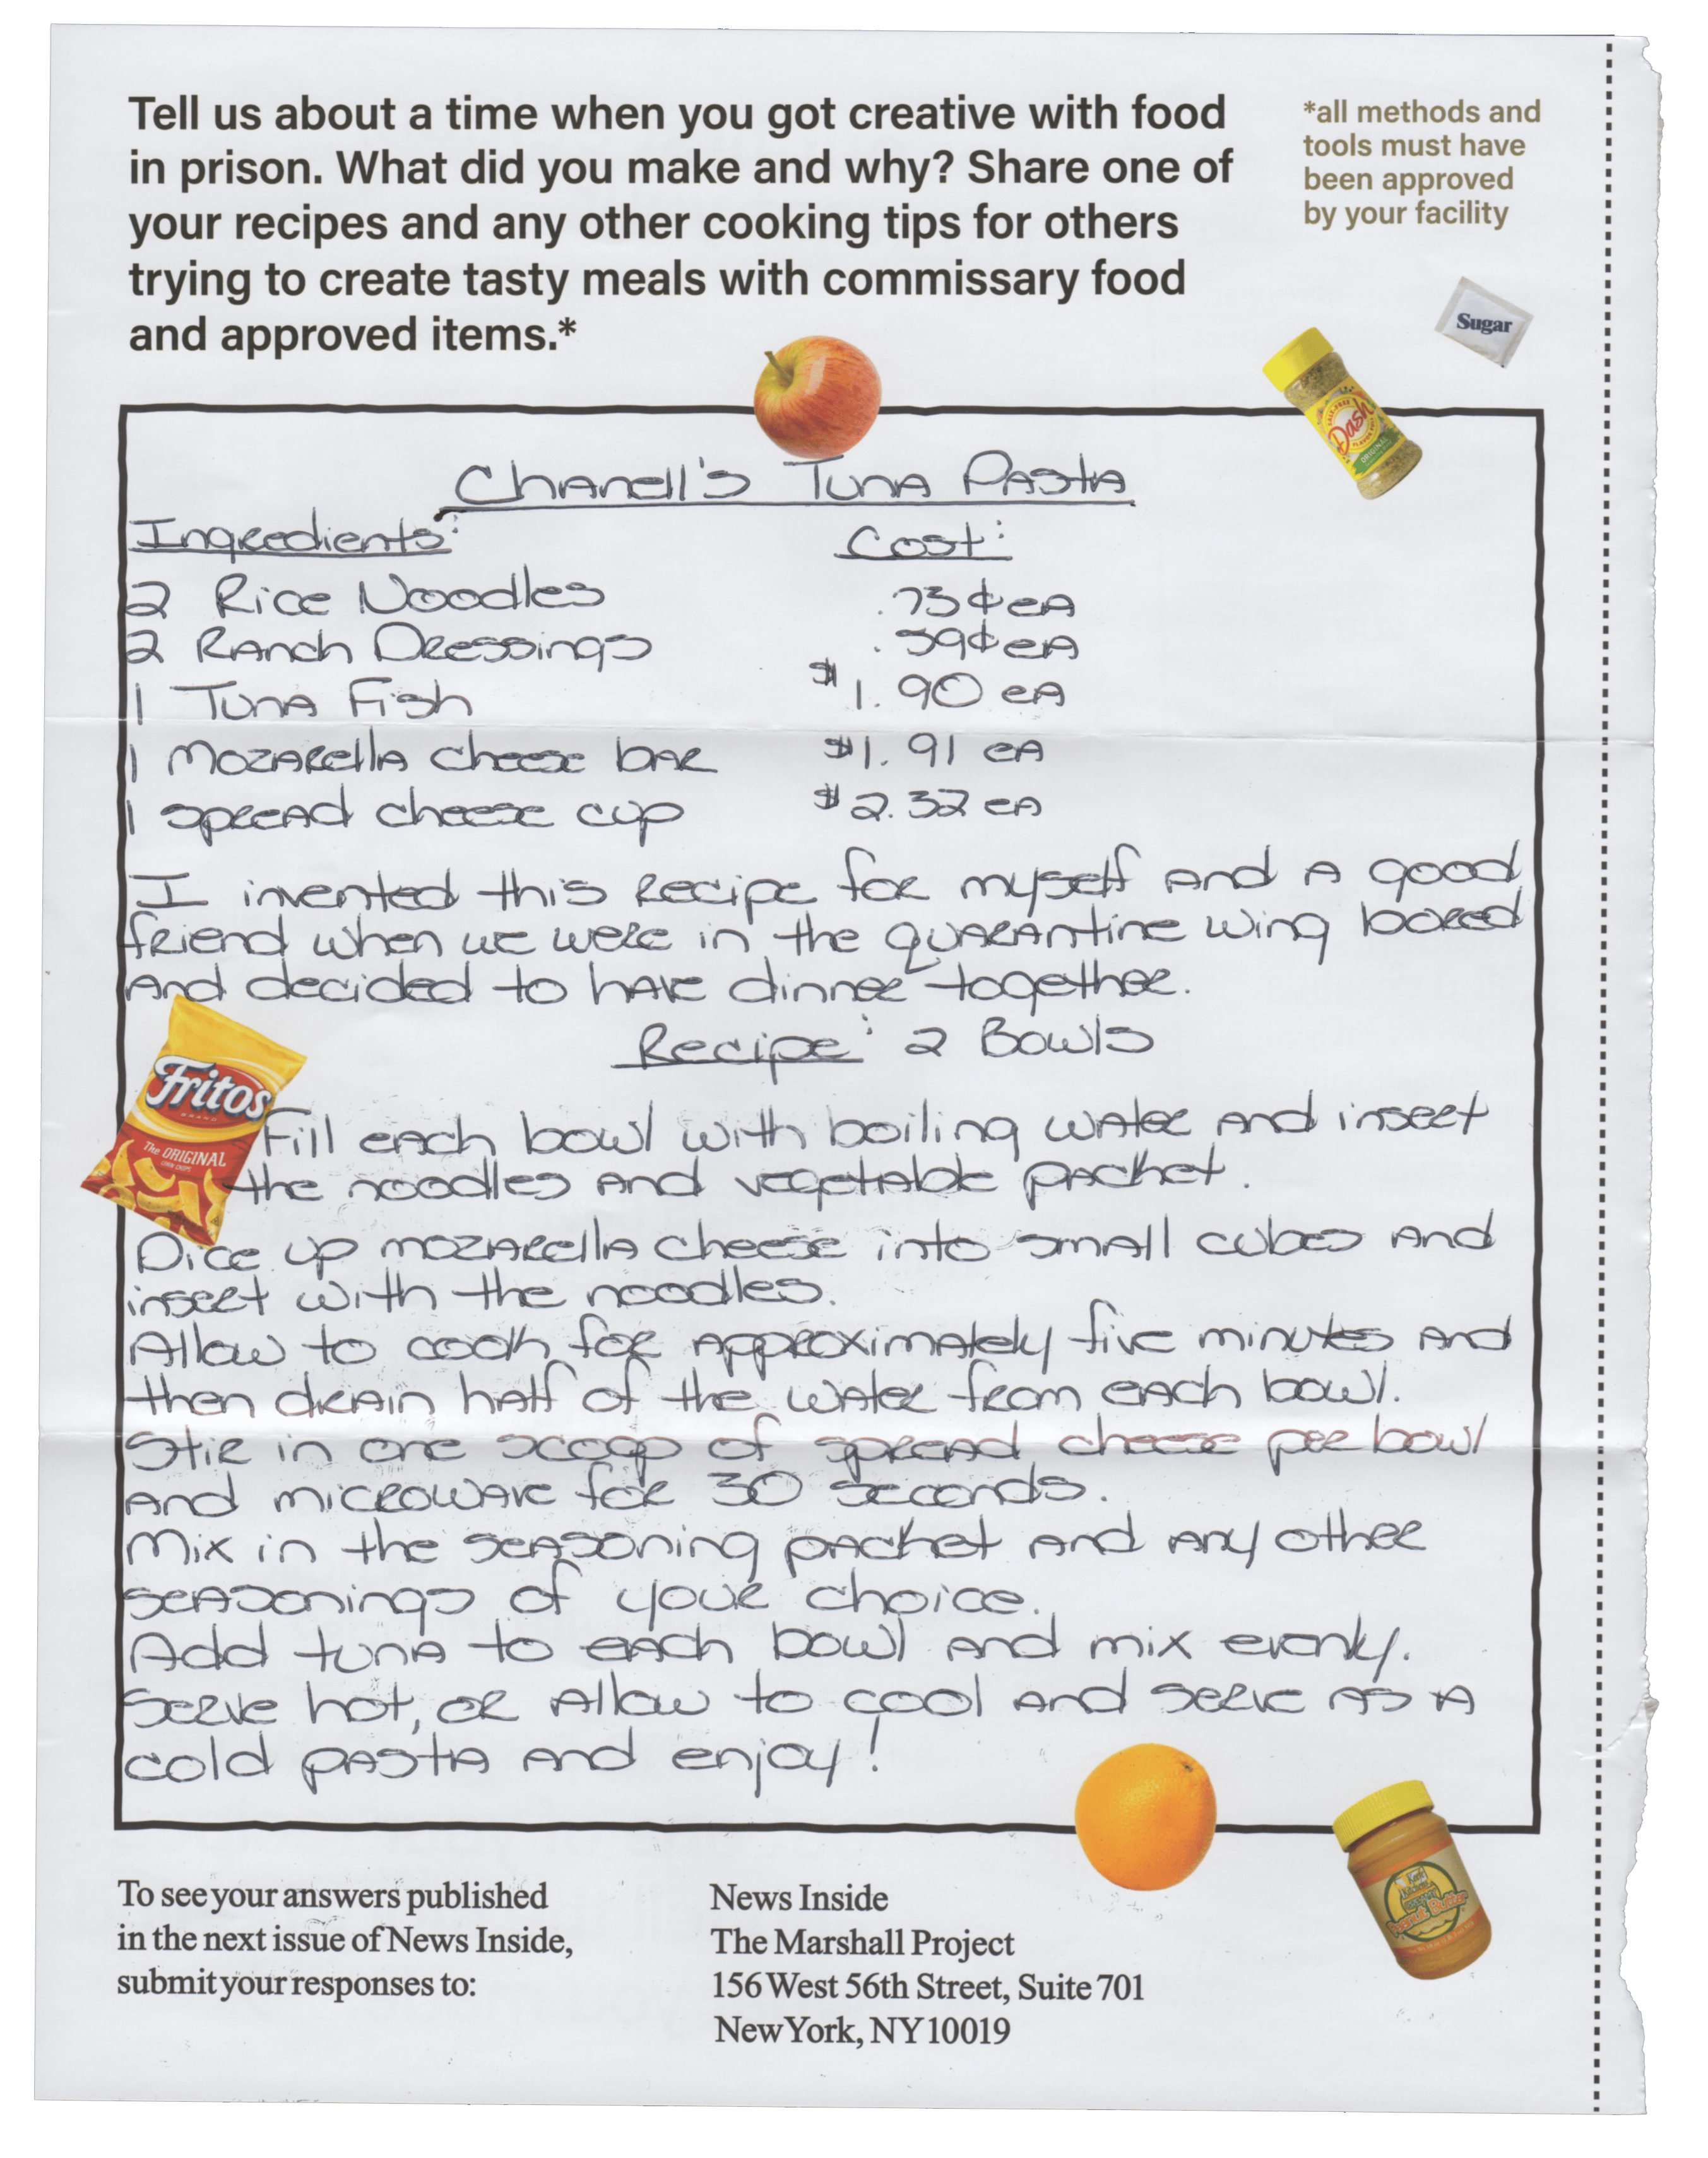 Tell us about a time when you got creative with food
in prison. What did you make and why? Share one of
your recipes and any other cooking tips for others
trying to create tasty meals with commissary food
and approved items.*
*all methods and
tools must have
been approved
by your facility
Sugar
Dash
ORIGINAL
Chanell's Tuna Pasta
Ingredients: Cost:
2 Rice Noodles .73¢ eA
2 Ranch Dressings .39¢ eA
1 Tuna Fish $1.90 eA
1 Mozarella cheese bar $1.91 eA
1 spread cheese cup $2.32 eA
I invented this recipe for myself and a good
friend when we were in the quarantine wing bored
and decided to have dinner together.
Recipe: 2 Bowls
Fritos
The ORIGINAL
Fill each bowl with boiling water and insert
the noodles and vegetable packet.
Dice up mozarella cheese into small cubes and
insert with the noodles.
Allow to cook for approximately five minutes and
then drain half of the water from each bowl.
Stir in one scoop of spread cheese per bowl
and microwave for 30 seconds.
Mix in the seasoning packet and any other
seasonings of your choice.
Add tuna to each bowl and mix evenly.
Serve hot, or allow to cool and serve as a
cold pasta and enjoy!
Peanut Butter
To see your answers published
in the next issue of News Inside,
submit your responses to:
News Inside
The Marshall Project
156 West 56th Street, Suite 701
New York, NY 10019